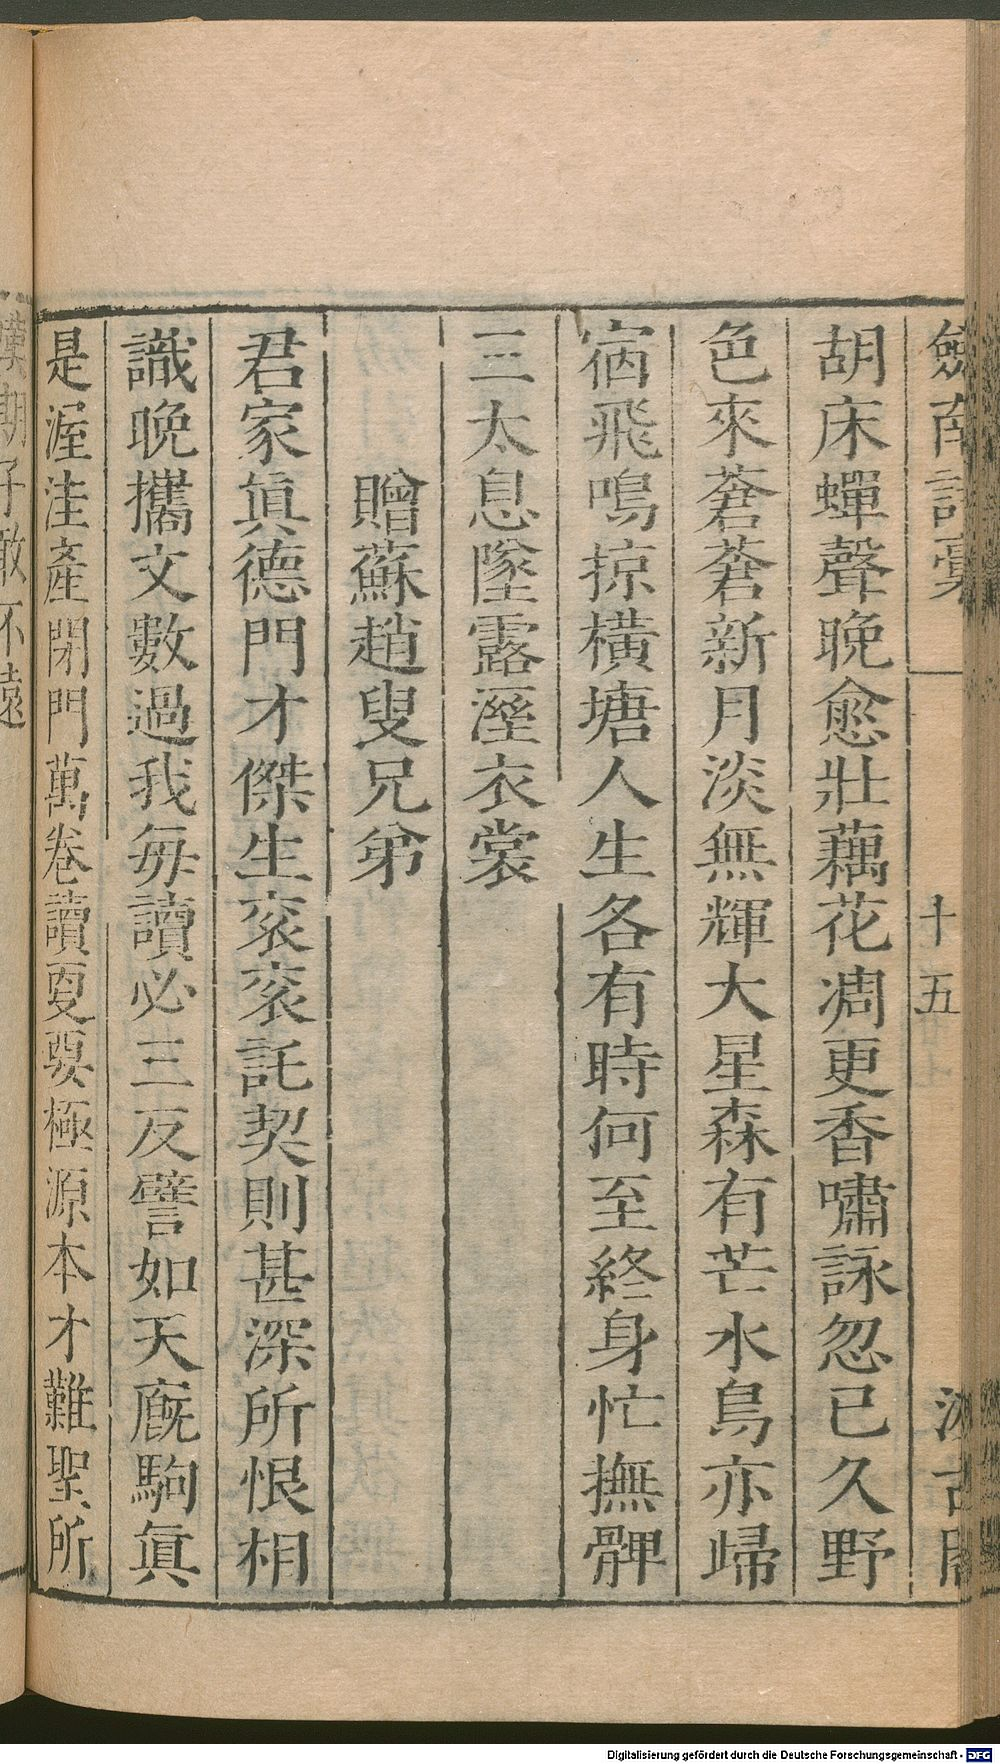 劍南詩稾 十五 汲古閣
胡床蟬聲晚愈壯藕花凋更香嘯詠忽已久野
色來蒼蒼新月淡無輝大星森有芒水鳥亦歸
宿飛鳴掠橫塘人生各有時何至終身忙撫髀
三太息墜露溼衣裳
贈蘇趙叟兄弟
君家眞德門才傑生衮衮託契則甚深所恨相
識晚攜文數過我每讀必三反譬如天廐駒眞
是渥洼產閉門萬卷讀更要極源本才難聖所
嘆期子敢不遠
Digitalisierung gefördert durch die Deutsche Forschungsgemeinschaft - DFG